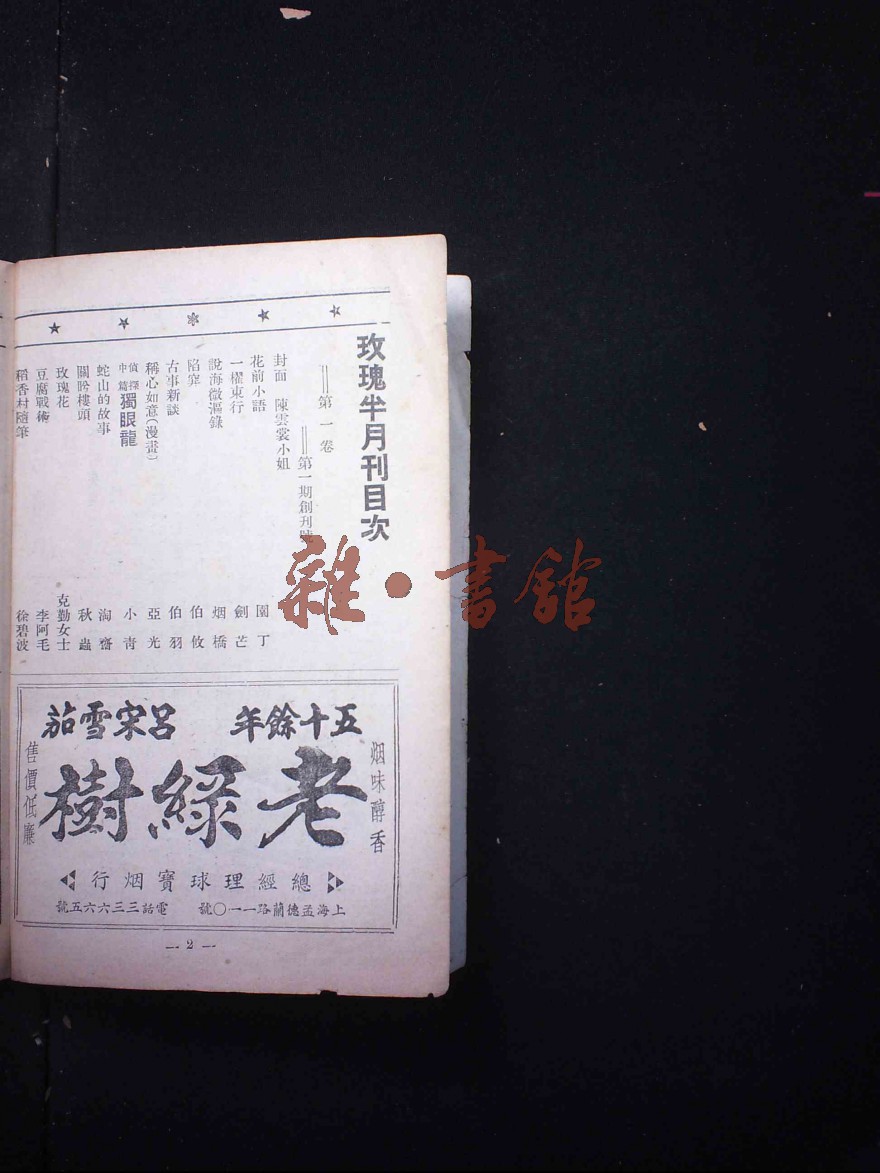 玫瑰半月刊目次
第一卷
第一期創刊號
封面 陳雲裳小姐
花前小語 園丁
一櫂東行 劍芒
說海微瀾錄 烟橋
陷穽 伯攸
古事新談 伯羽
稱心如意(漫畫) 亞光
偵探中篇 獨眼龍 小青
蛇山的故事 洵齋
關盻樓頭 秋蟲
玫瑰花 克勤女士
豆腐戰術 李阿毛
稻香村隨筆 徐碧波
雜·書館
五十餘年 呂宋雪茄
烟味醇香
老綠樹
售價低廉
總經理球寶烟行
上海孟德蘭路一一〇號 電話三三六六五號
— 2 —